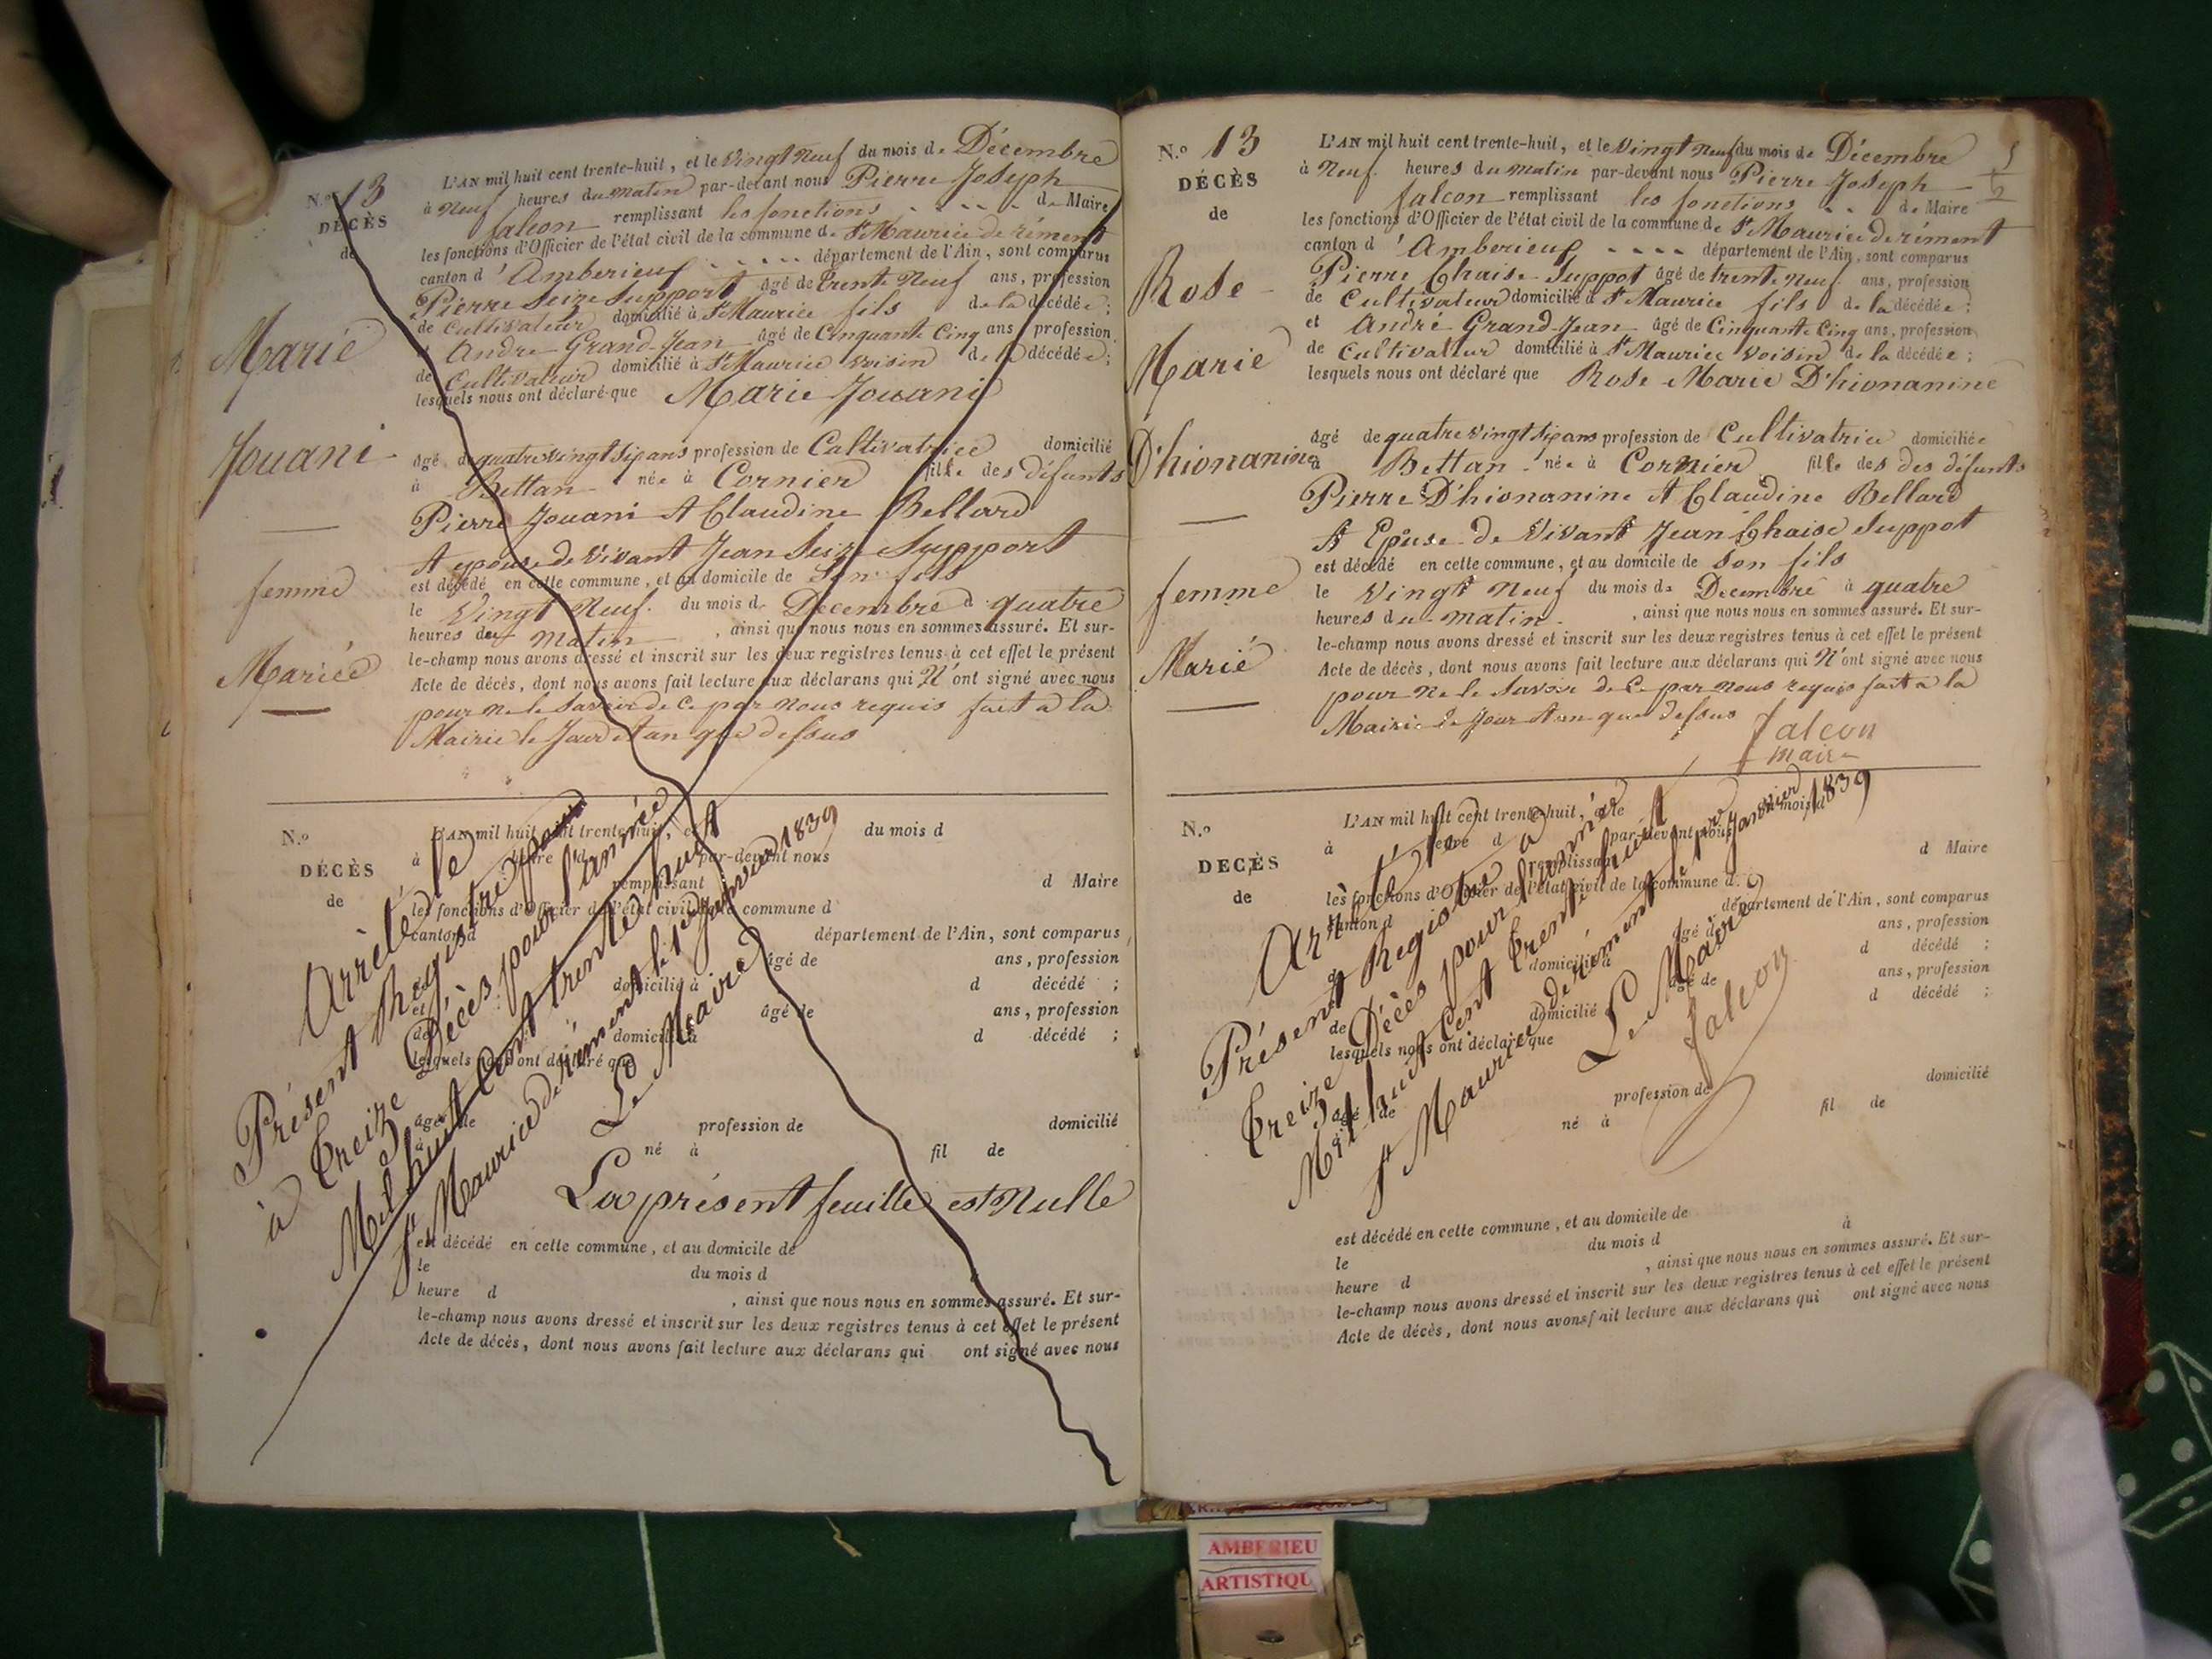 N.º 13
DÉCÈS
de
Marie
Jouani
femme
Mariée
L'AN mil huit cent trente-huit, et le Vingt Neuf du mois de Décembre
à Neuf heures du matin par-devant nous Pierre Joseph
falcon remplissant les fonctions de Maire
les fonctions d'Officier de l'état civil de la commune de St Maurice de rément
canton d'Amberieux département de l'Ain, sont comparus
Pierre Seize Support âgé de trente Neuf ans, profession
de Cultivateur domicilié à St Maurice fils de la décédée ;
et André Grand-Jean âgé de Cinquante Cinq ans, profession
de Cultivateur domicilié à St Maurice Voisin de la décédée ;
lesquels nous ont déclaré que Marie Jouani
âgé de quatre vingt Six ans profession de Cultivatrice domicilié
à Bettan née à Cornier fille des défunts
Pierre Jouani et Claudine Bellard
et epouse de Vivant Jean Seize Support
est décédé en cette commune, et au domicile de Son fils
le Vingt Neuf du mois de Décembre à quatre
heures du matin , ainsi que nous nous en sommes assuré. Et sur-
le-champ nous avons dressé et inscrit sur les deux registres tenus à cet effet le présent
Acte de décès, dont nous avons fait lecture aux déclarans qui N'ont signé avec nous
pour ne le Savoir de Ce par Nous requis fait a la
Mairie le Jour et an que dessus
N.º
DÉCÈS
de
L'AN mil huit cent trente-huit, et le du mois d
à heure d par-devant nous
remplissant d Maire
les fonctions d'Officier de l'état civil de la commune d
canton d département de l'Ain, sont comparus
âgé de ans, profession
de domicilié à d décédé ;
et âgé de ans, profession
de domicilié à d décédé ;
lesquels nous ont déclaré que
âgé de profession de domicilié
à né à fil de
Arrêté le
Présent Registre pour
à Treize Décès pour l'année
Mil huit Cent trente huit
St Maurice de rément le 1er Janvier 1839
Le Maire
La présent feuille est Nulle
est décédé en cette commune, et au domicile de
le du mois d à
heure d , ainsi que nous nous en sommes assuré. Et sur-
le-champ nous avons dressé et inscrit sur les deux registres tenus à cet effet le présent
Acte de décès, dont nous avons fait lecture aux déclarans qui ont signé avec nous
N.º 13
DÉCÈS
de
Rose
Marie
D'hionanine
femme
Marié
L'AN mil huit cent trente-huit, et le Vingt Neuf du mois de Décembre
à Neuf heures du matin par-devant nous Pierre Joseph
falcon remplissant les fonctions de Maire
les fonctions d'Officier de l'état civil de la commune de St Maurice de rément
canton d'Amberieux département de l'Ain, sont comparus
Pierre Chaise Suppot âgé de trente Neuf ans, profession
de Cultivateur domicilié à St Maurice fils de la décédée ;
et André Grand-Jean âgé de Cinquante Cinq ans, profession
de Cultivateur domicilié à St Maurice Voisin de la décédée ;
lesquels nous ont déclaré que Rose Marie D'hionanine
âgé de quatre vingt Six ans profession de Cultivatrice domiciliée
à Bettan née à Cornier fille des des défunts
Pierre D'hionanine et Claudine Bellard
et Epouse de Vivant Jean Chaise Suppot
est décédé en cette commune, et au domicile de Son fils
le Vingt Neuf du mois de Décembre à quatre
heures du matin , ainsi que nous nous en sommes assuré. Et sur-
le-champ nous avons dressé et inscrit sur les deux registres tenus à cet effet le présent
Acte de décès, dont nous avons fait lecture aux déclarans qui N'ont signé avec nous
pour ne le Savoir de Ce par Nous requis fait a la
Mairie le Jour et an que dessus
falcon
maire
N.º
DÉCÈS
de
L'AN mil huit cent trente-huit, et le mois d
à heure d par-devant nous
remplissant d Maire
les fonctions d'Officier de l'état civil de la commune d
canton d département de l'Ain, sont comparus
âgé de ans, profession
d domicilié à d décédé ;
âgé de ans, profession
de domicilié d décédé ;
lesquels nous ont déclaré que
âgé de profession de domicilié
à né à fil de
Arrêté le
Présent Registre à
Treize Décès pour l'année
Mil huit Cent trente huit
St Maurice de rément le 1er Janvier 1839
Le Maire
falcon
est décédé en cette commune, et au domicile de
le du mois d à
heure d , ainsi que nous nous en sommes assuré. Et sur-
le-champ nous avons dressé et inscrit sur les deux registres tenus à cet effet le présent
Acte de décès, dont nous avons fait lecture aux déclarans qui ont signé avec nous
AMBERIEU
ARTISTIQU